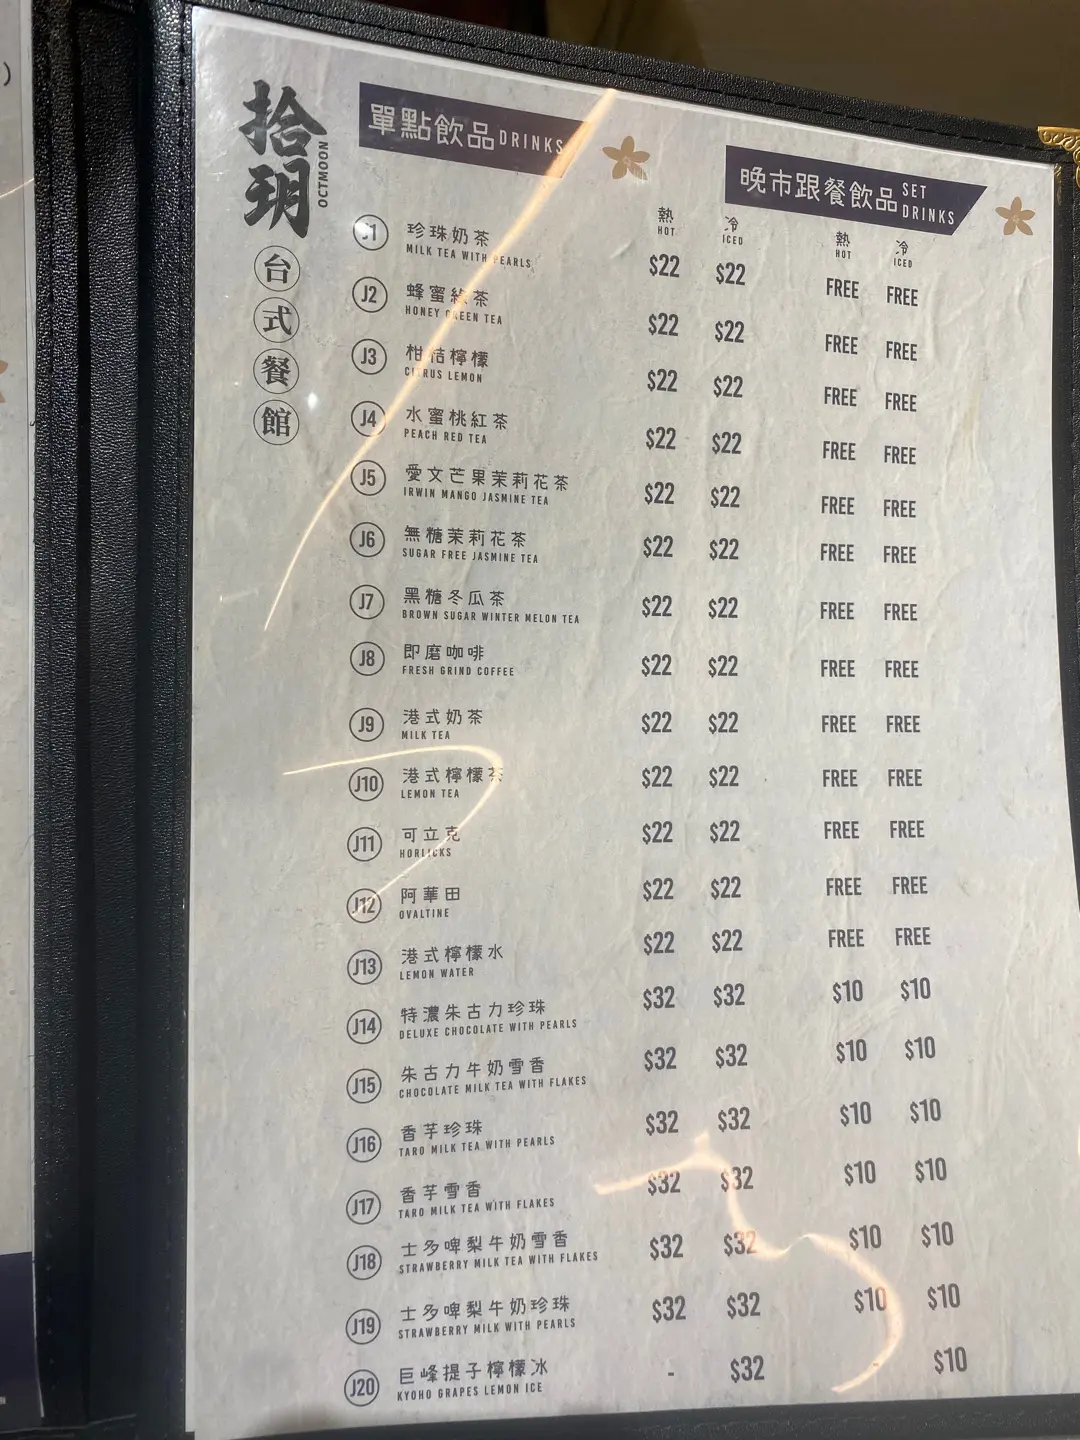 拾玥
OCTMOON
台式餐館
單點飲品 DRINKS
晚市跟餐飲品 SET DRINKS
熱 HOT 冷 ICED 熱 HOT 冷 ICED
J1 珍珠奶茶 $22 $22 FREE FREE
MILK TEA WITH PEARLS
J2 蜂蜜綠茶 $22 $22 FREE FREE
HONEY GREEN TEA
J3 柑桔檸檬 $22 $22 FREE FREE
CITRUS LEMON
J4 水蜜桃紅茶 $22 $22 FREE FREE
PEACH RED TEA
J5 愛文芒果茉莉花茶 $22 $22 FREE FREE
IRWIN MANGO JASMINE TEA
J6 無糖茉莉花茶 $22 $22 FREE FREE
SUGAR FREE JASMINE TEA
J7 黑糖冬瓜茶 $22 $22 FREE FREE
BROWN SUGAR WINTER MELON TEA
J8 即磨咖啡 $22 $22 FREE FREE
FRESH GRIND COFFEE
J9 港式奶茶 $22 $22 FREE FREE
MILK TEA
J10 港式檸檬茶 $22 $22 FREE FREE
LEMON TEA
J11 可立克 $22 $22 FREE FREE
HORLICKS
J12 阿華田 $22 $22 FREE FREE
OVALTINE
J13 港式檸檬水 $22 $22 FREE FREE
LEMON WATER
J14 特濃朱古力珍珠 $32 $32 $10 $10
DELUXE CHOCOLATE WITH PEARLS
J15 朱古力牛奶雪香 $32 $32 $10 $10
CHOCOLATE MILK TEA WITH FLAKES
J16 香芋珍珠 $32 $32 $10 $10
TARO MILK TEA WITH PEARLS
J17 香芋雪香 $32 $32 $10 $10
TARO MILK TEA WITH FLAKES
J18 士多啤梨牛奶雪香 $32 $32 $10 $10
STRAWBERRY MILK TEA WITH FLAKES
J19 士多啤梨牛奶珍珠 $32 $32 $10 $10
STRAWBERRY MILK WITH PEARLS
J20 巨峰提子檸檬冰 - $32 - $10
KYOHO GRAPES LEMON ICE